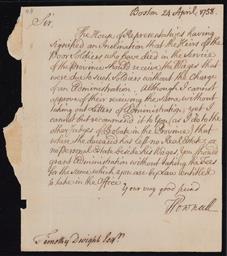 Boston 24 April, 1758.
Sir.
The House of Representatives having
signified an Inclination that the Heirs of the
Poor Soldiers who have died in the Service
of the Province should receive the Wages that
were due to such Soldiers without the Charge
of an Administration, Although I cannot
approve of their receiving the same without
taking out Letters of Administration; yet I
cannot but recommend it to you (as I do to the
other Judges of Probate in the Province) that
where the deceased has left no Real Estate, or
no personal Estate beside his Wages, You should
grant Administration without taking the Fees
for the same which you are by Law entitled
to take in the Office.
Your very good friend
TPownall
Timothy Dwight Esqr.